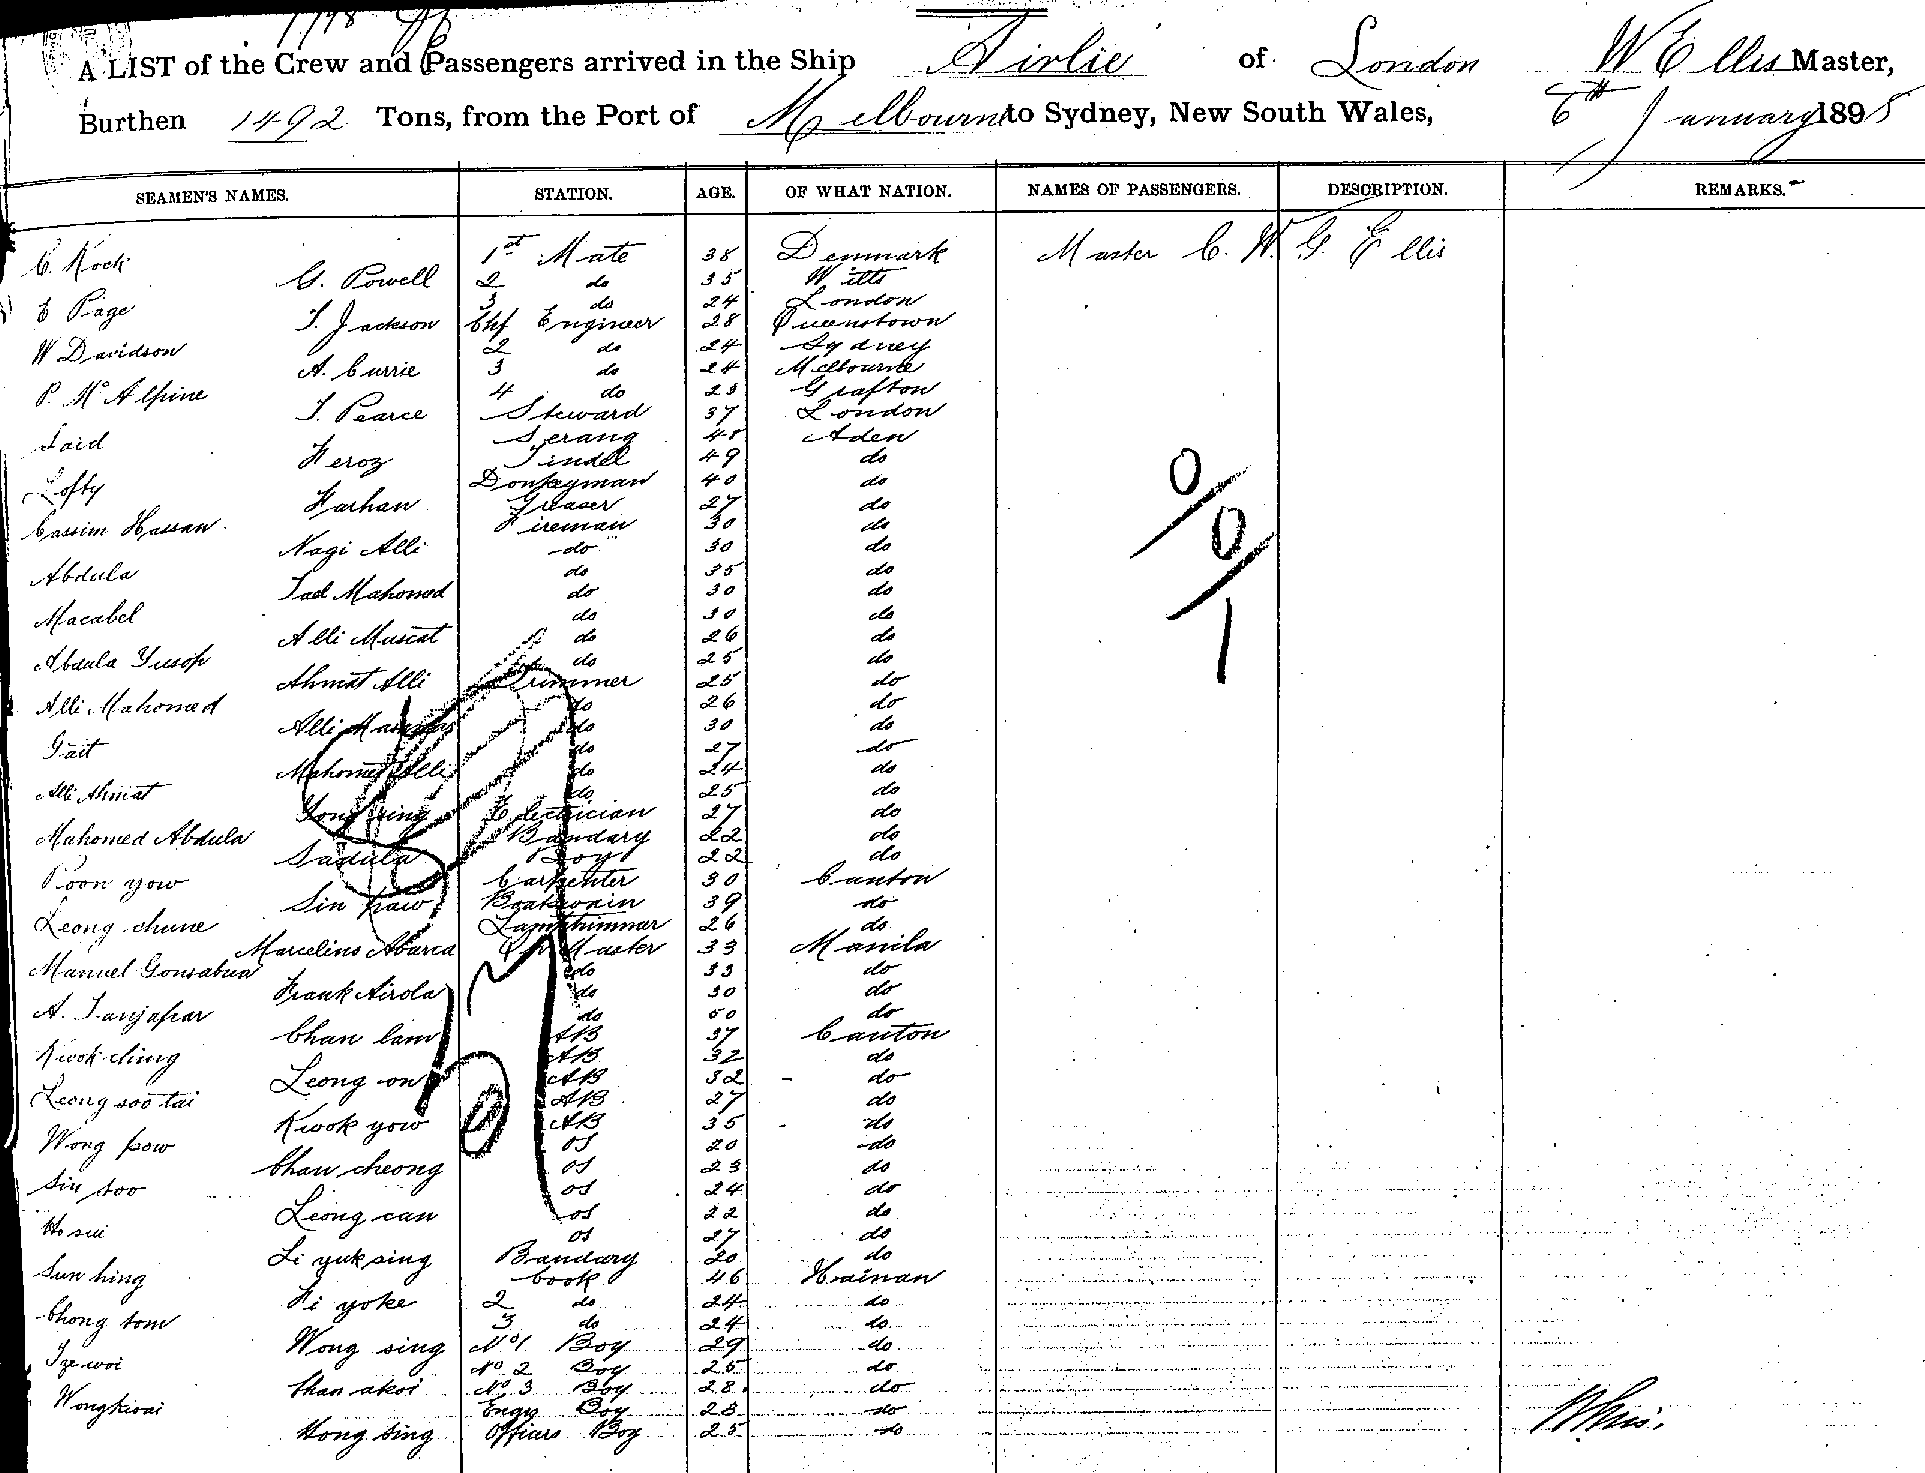 A LIST of the Crew and Passengers arrived in the Ship Airlie of London W Ellis Master,
Burthen 1492 Tons, from the Port of Melbourne to Sydney, New South Wales, 6th January 1895
SEAMEN'S NAMES. STATION. AGE. OF WHAT NATION. NAMES OF PASSENGERS. DESCRIPTION. REMARKS.
C. Kock 1st Mate 38 Denmark Master C. W. G. Ellis
G. Powell 2 do 35 Wilts
E Page 3 do 24 London
T. Jackson Chf Engineer 28 Queenstown
W Davidson 2 do 24 Sydney
A. Currie 3 do 24 Melbourne
P. McAlpine 4 do 23 Grafton
T. Pearce Steward 37 London
Said Serang 48 Aden
Feroz Tindel 49 do
Lofty Donkeyman 40 do
Farhan Greaser 27 do
Cassim Hassan Fireman 30 do
Nagi Alli do 30 do
Abdula do 35 do
Sad Mahomed do 30 do
Macabel do 30 do
Alli Muscat do 26 do
Abdula Yusop do 25 do
Ahmat Alli Trimmer 25 do
Alli Mahomed do 26 do
Alli do 30 do
Gait do 27 do
Mahomed Alli do 24 do
Alli Ahmat do 25 do
Electrician 27 do
Mahomed Abdula Bandary 22 do
Sadula Boy 22 do
Poon yow Carpenter 30 Canton
Sin paw Boatswain 39 do
Leong chune Lamptrimmer 26 do
Marcelino Abarca Qr Master 33 Manila
Manuel do 33 do
Frank Airola do 30 do
A. Tanjapar do 50 do
Chan lam AB 37 Canton
Kwok ching AB 32 do
Leong on AB 32 do
Leong soo tai AB 27 do
Kwok yow AB 35 do
Wong pow OS 20 do
Chan cheong OS 23 do
Sin soo OS 24 do
Leong can OS 22 do
Ho sui OS 27 do
Li yuk sing Bandary 20 do
Sun hing Cook 46 Hainan
Fi yoke 2 do 24 do
Chong tom 3 do 24 do
Wong sing No 1 Boy 29 do
Tze woi No 2 Boy 25 do
Chan akoi No 3 Boy 28 do
Wong kwai Engrs Boy 23 do
Hong sing Officers Boy 25 do
0/0/1